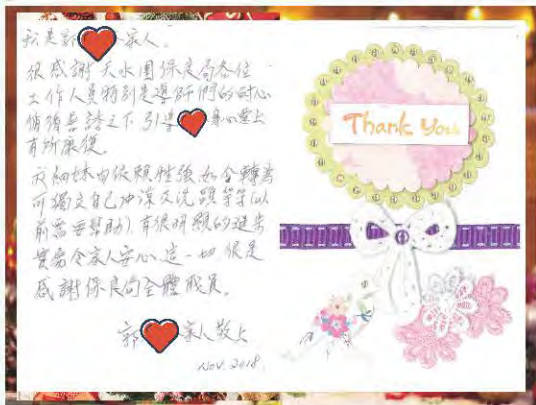 我是郭❤家人。
很感謝天水圍保良局各位
工作人員特別是導師們的耐心
循循善誘之下,引導❤身心靈上
有所康復。
由依賴性強,如今轉為
可獨立自己沖涼又洗頭等等(以
前需要幫助),有很明顯的進步
實令家人安心,這一切很是
感謝保良的全體職員。
郭❤家人敬上
Nov. 2018.
Thank You